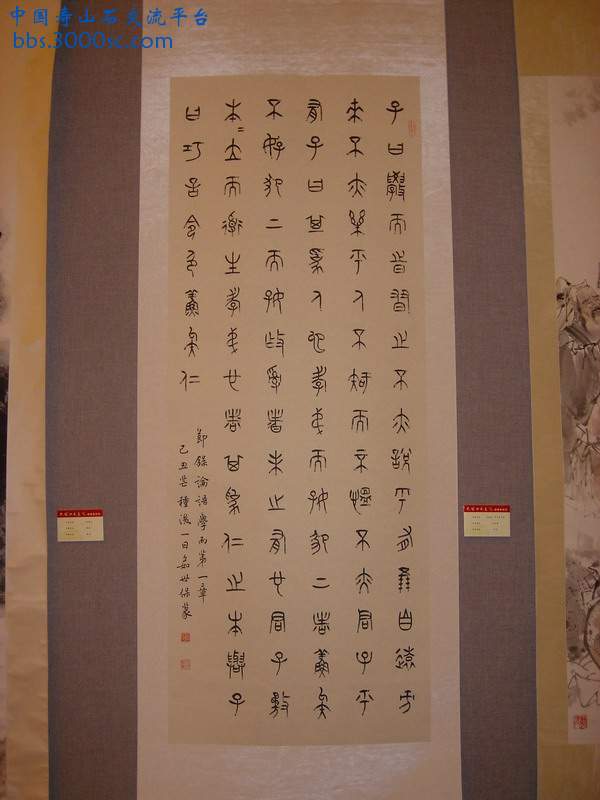 中国寿山石交流平台
bbs.3000sc.com
子曰學而時習之不亦說乎有朋自遠方
來不亦樂乎人不知而不慍不亦君子乎
有子曰其爲人也孝弟而好犯上者鮮矣
不好犯上而好作亂者未之有也君子務
本=立而道生孝弟也者其爲仁之本與子
曰巧言令色鮮矣仁
節錄論語學而第一章
己丑芒種後一日世保篆